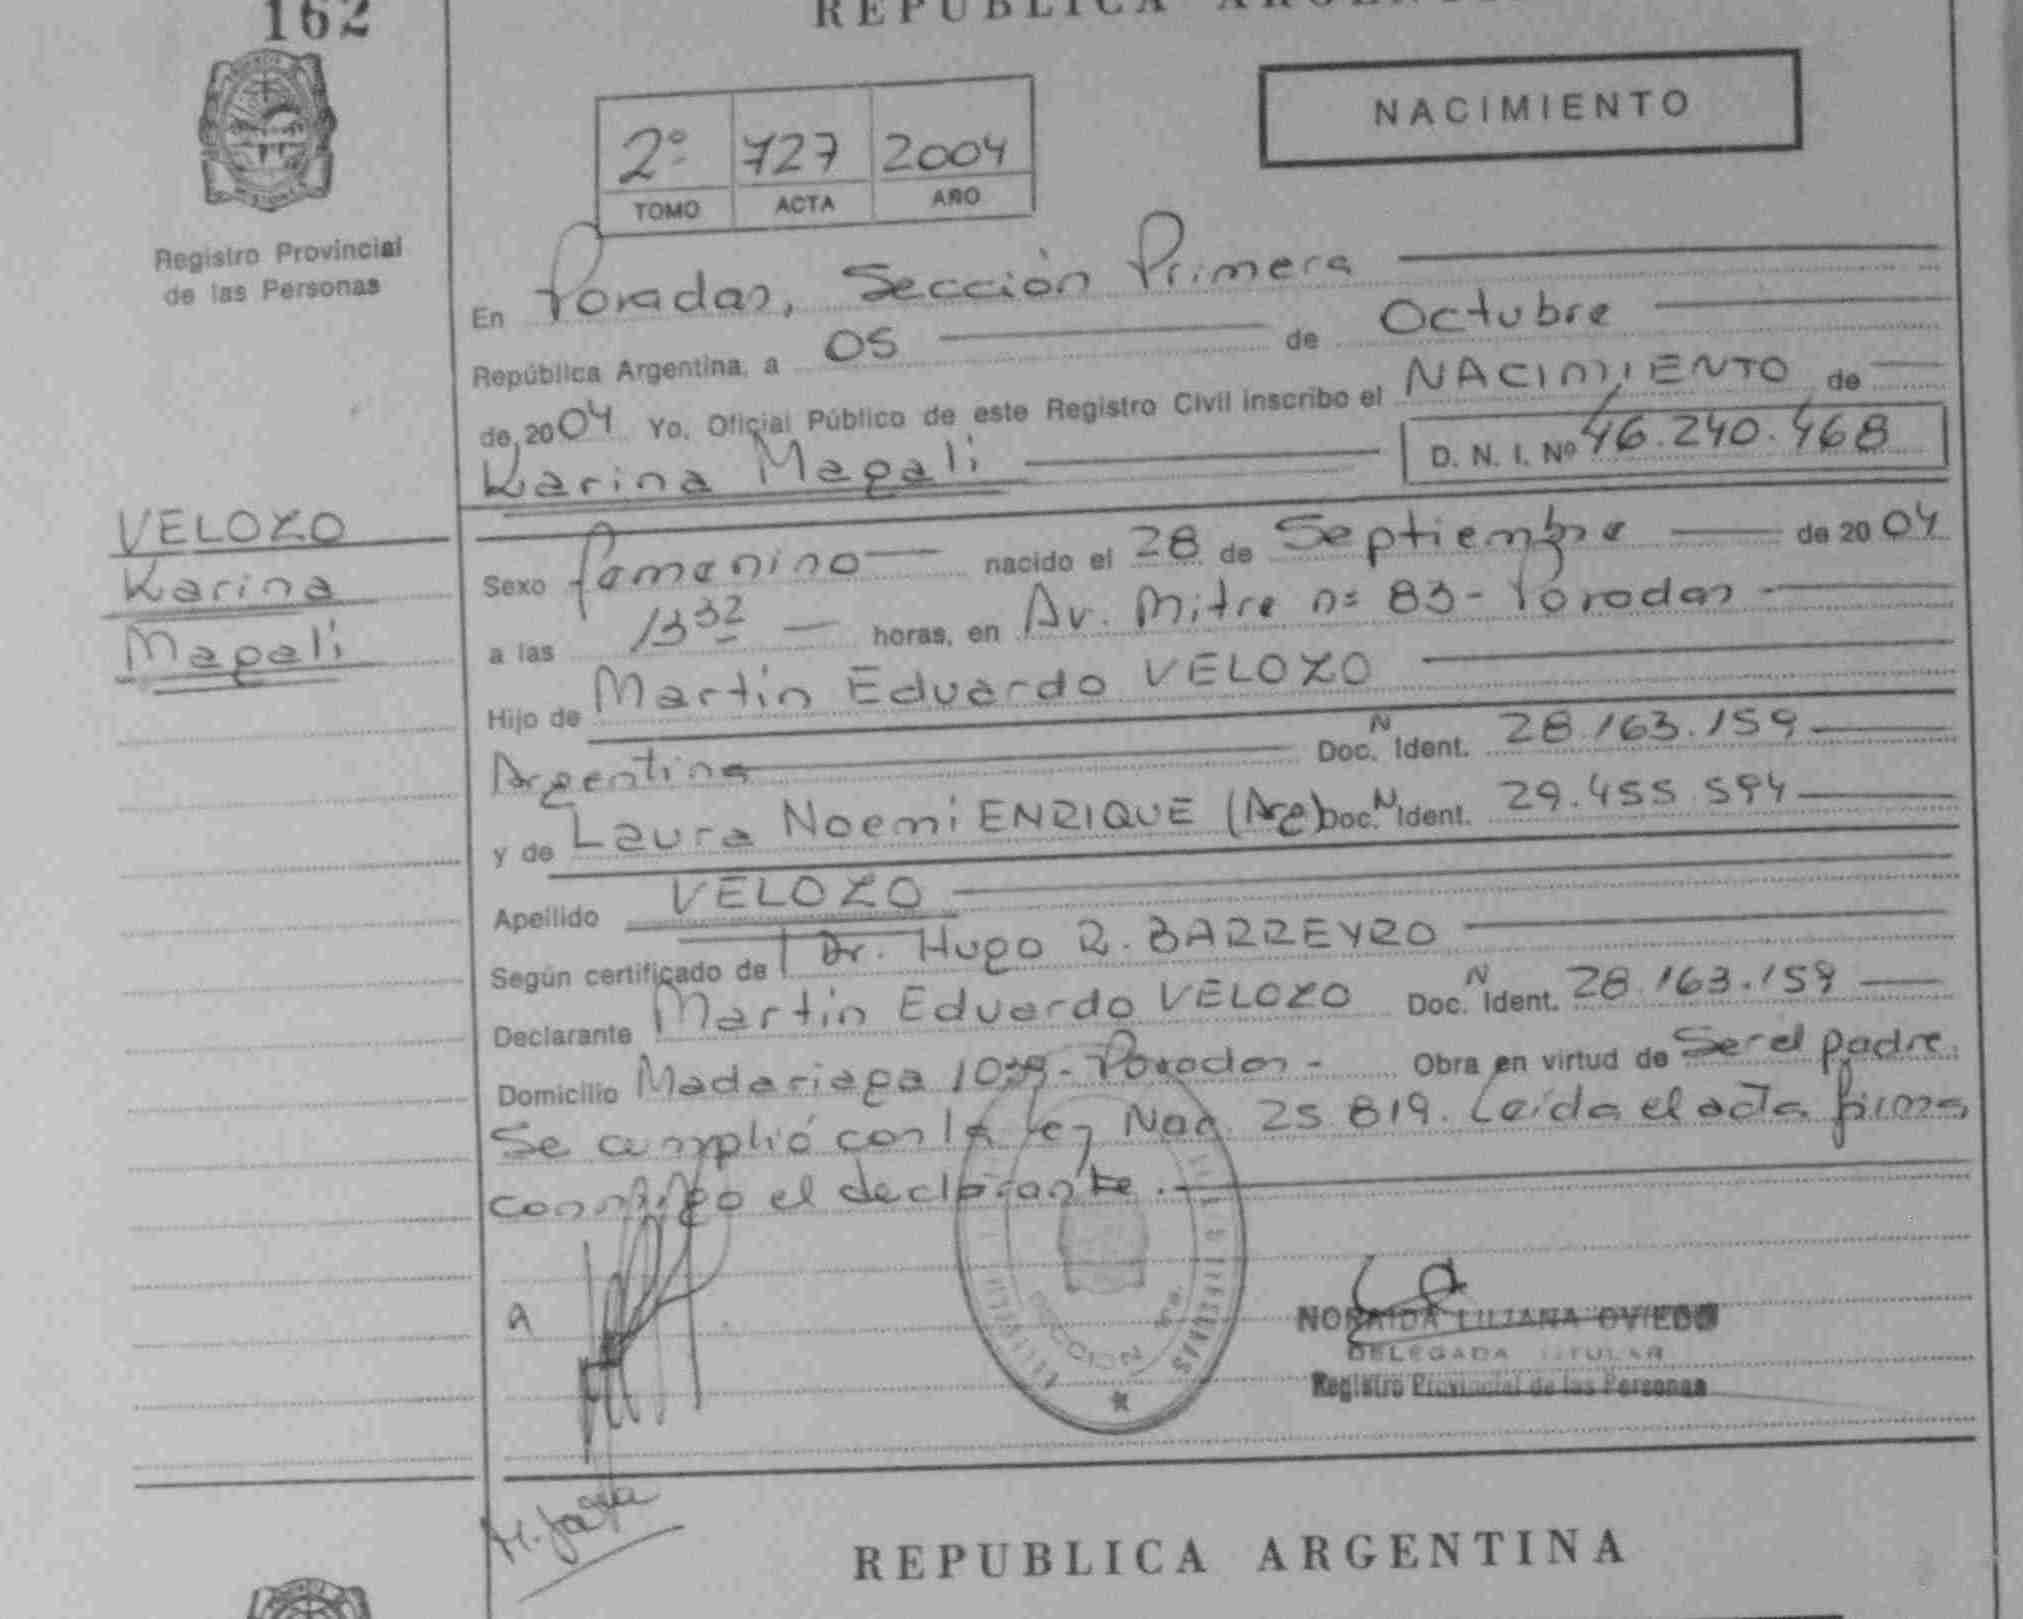 162
REPUBLICA ARGENTINA
NACIMIENTO
2º 727 2004
TOMO ACTA AÑO
Registro Provincial
de las Personas
En Posadas, Sección Primera
República Argentina, a 05 de Octubre
de 2004 Yo, Oficial Público de este Registro Civil inscribo el NACIMIENTO de
Karina Magali D. N. I. Nº 46.240.468
VELOZO
Karina
Magali
Sexo femenino nacido el 28 de Septiembre de 2004
a las 13 32 horas, en Av. Mitre nº 83 - Posadas
Hijo de Martín Eduardo VELOZO
Argentina Doc. N Ident. 28.163.159
y de Laura Noemi ENRIQUE (Arg) Doc. N Ident. 29.455.594
Apellido VELOZO
Según certificado de Dr. Hugo R. BARREYRO
Declarante Martín Eduardo VELOZO Doc. N Ident. 28.163.159
Domicilio Madariaga 1039 - Posadas - Obra en virtud de Ser el padre.
Se cumplió con la ley Nac. 25.819. Leída el acta firma
conmigo el declarante.
SECCION 1ra.
NORAIDA LILIANA OVIEDO
DELEGADA TITULAR
Registro Provincial de las Personas
REPUBLICA ARGENTINA